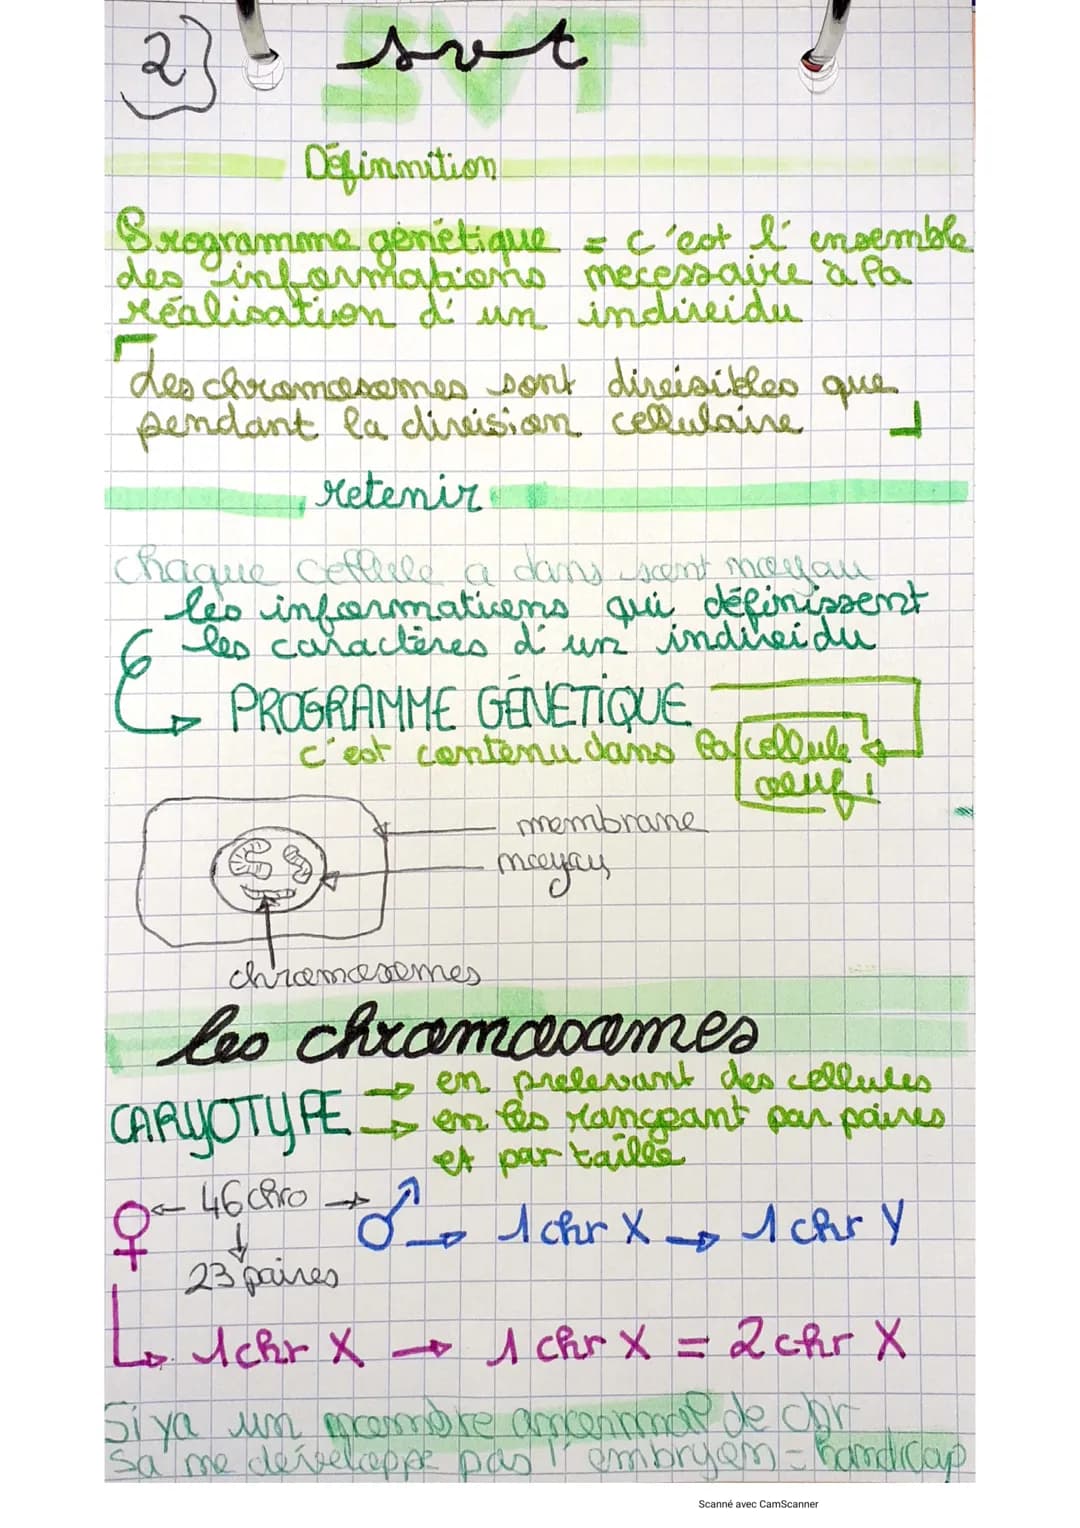 2}
svt
SVT
Définmition
Programme génétique = c'est l'ensemble
des informations necessaire à la
réalisation d'un individu
Les chromosomes sont divisibles que
pendant la division cellulaire
retenir
chaque cellule a dans sont noyau
les informations qui définissent
les caractères d'un individu
PROGRAMME GÉNETIQUE
c'est contenu dans la cellule
oeuf !
membrane
noyau
chromosomes
les chromosomes
CARYOTYPE → en prelevant des cellules
→ en les rangeant par paires
et par taille
♀ ← 46 chro → ♂ → 1 chr X → 1 chr Y
↓
23 paires
↳ 1 chr X → 1 chr X = 2 chr X
Si ya un nombre anormal de chr
sa ne développe pas l'embryon = handicap
Scanné avec CamScanner